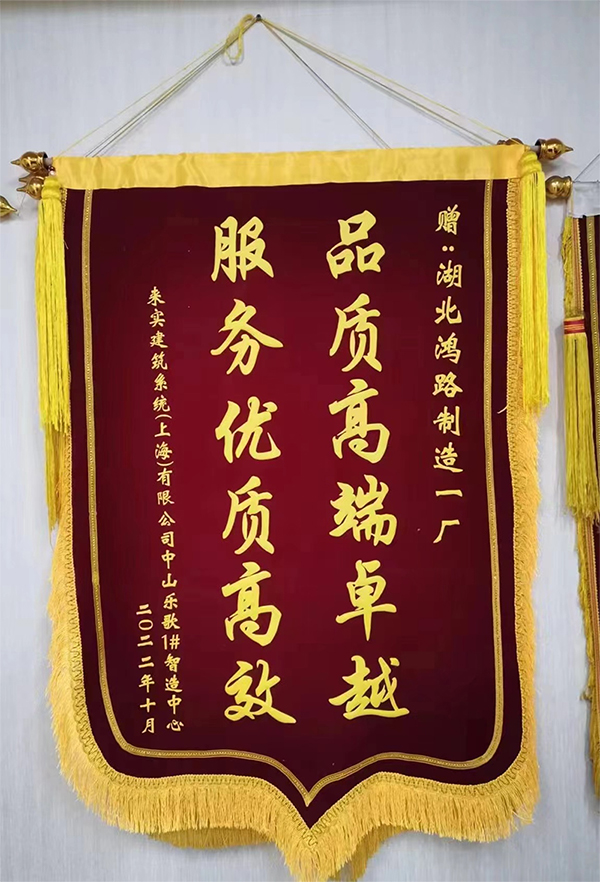 赠:湖北鸿路制造一厂
品质高端卓越
服务优质高效
来实建筑系统(上海)有限公司中山乐歌1#智造中心
二〇二二年十月